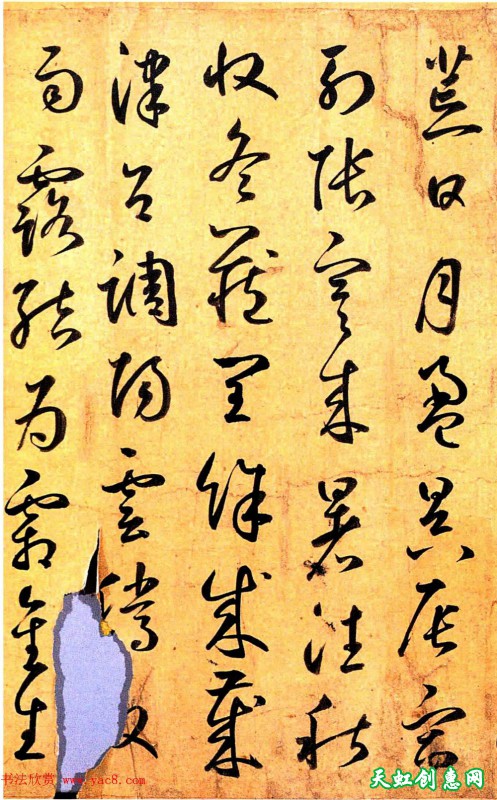 荒日月盈昃辰宿
列張寒來暑往秋
收冬藏閏餘成歲
律呂調陽雲騰
雨露結為霜金生
书法欣赏 www.yac8.com
天虹创惠网